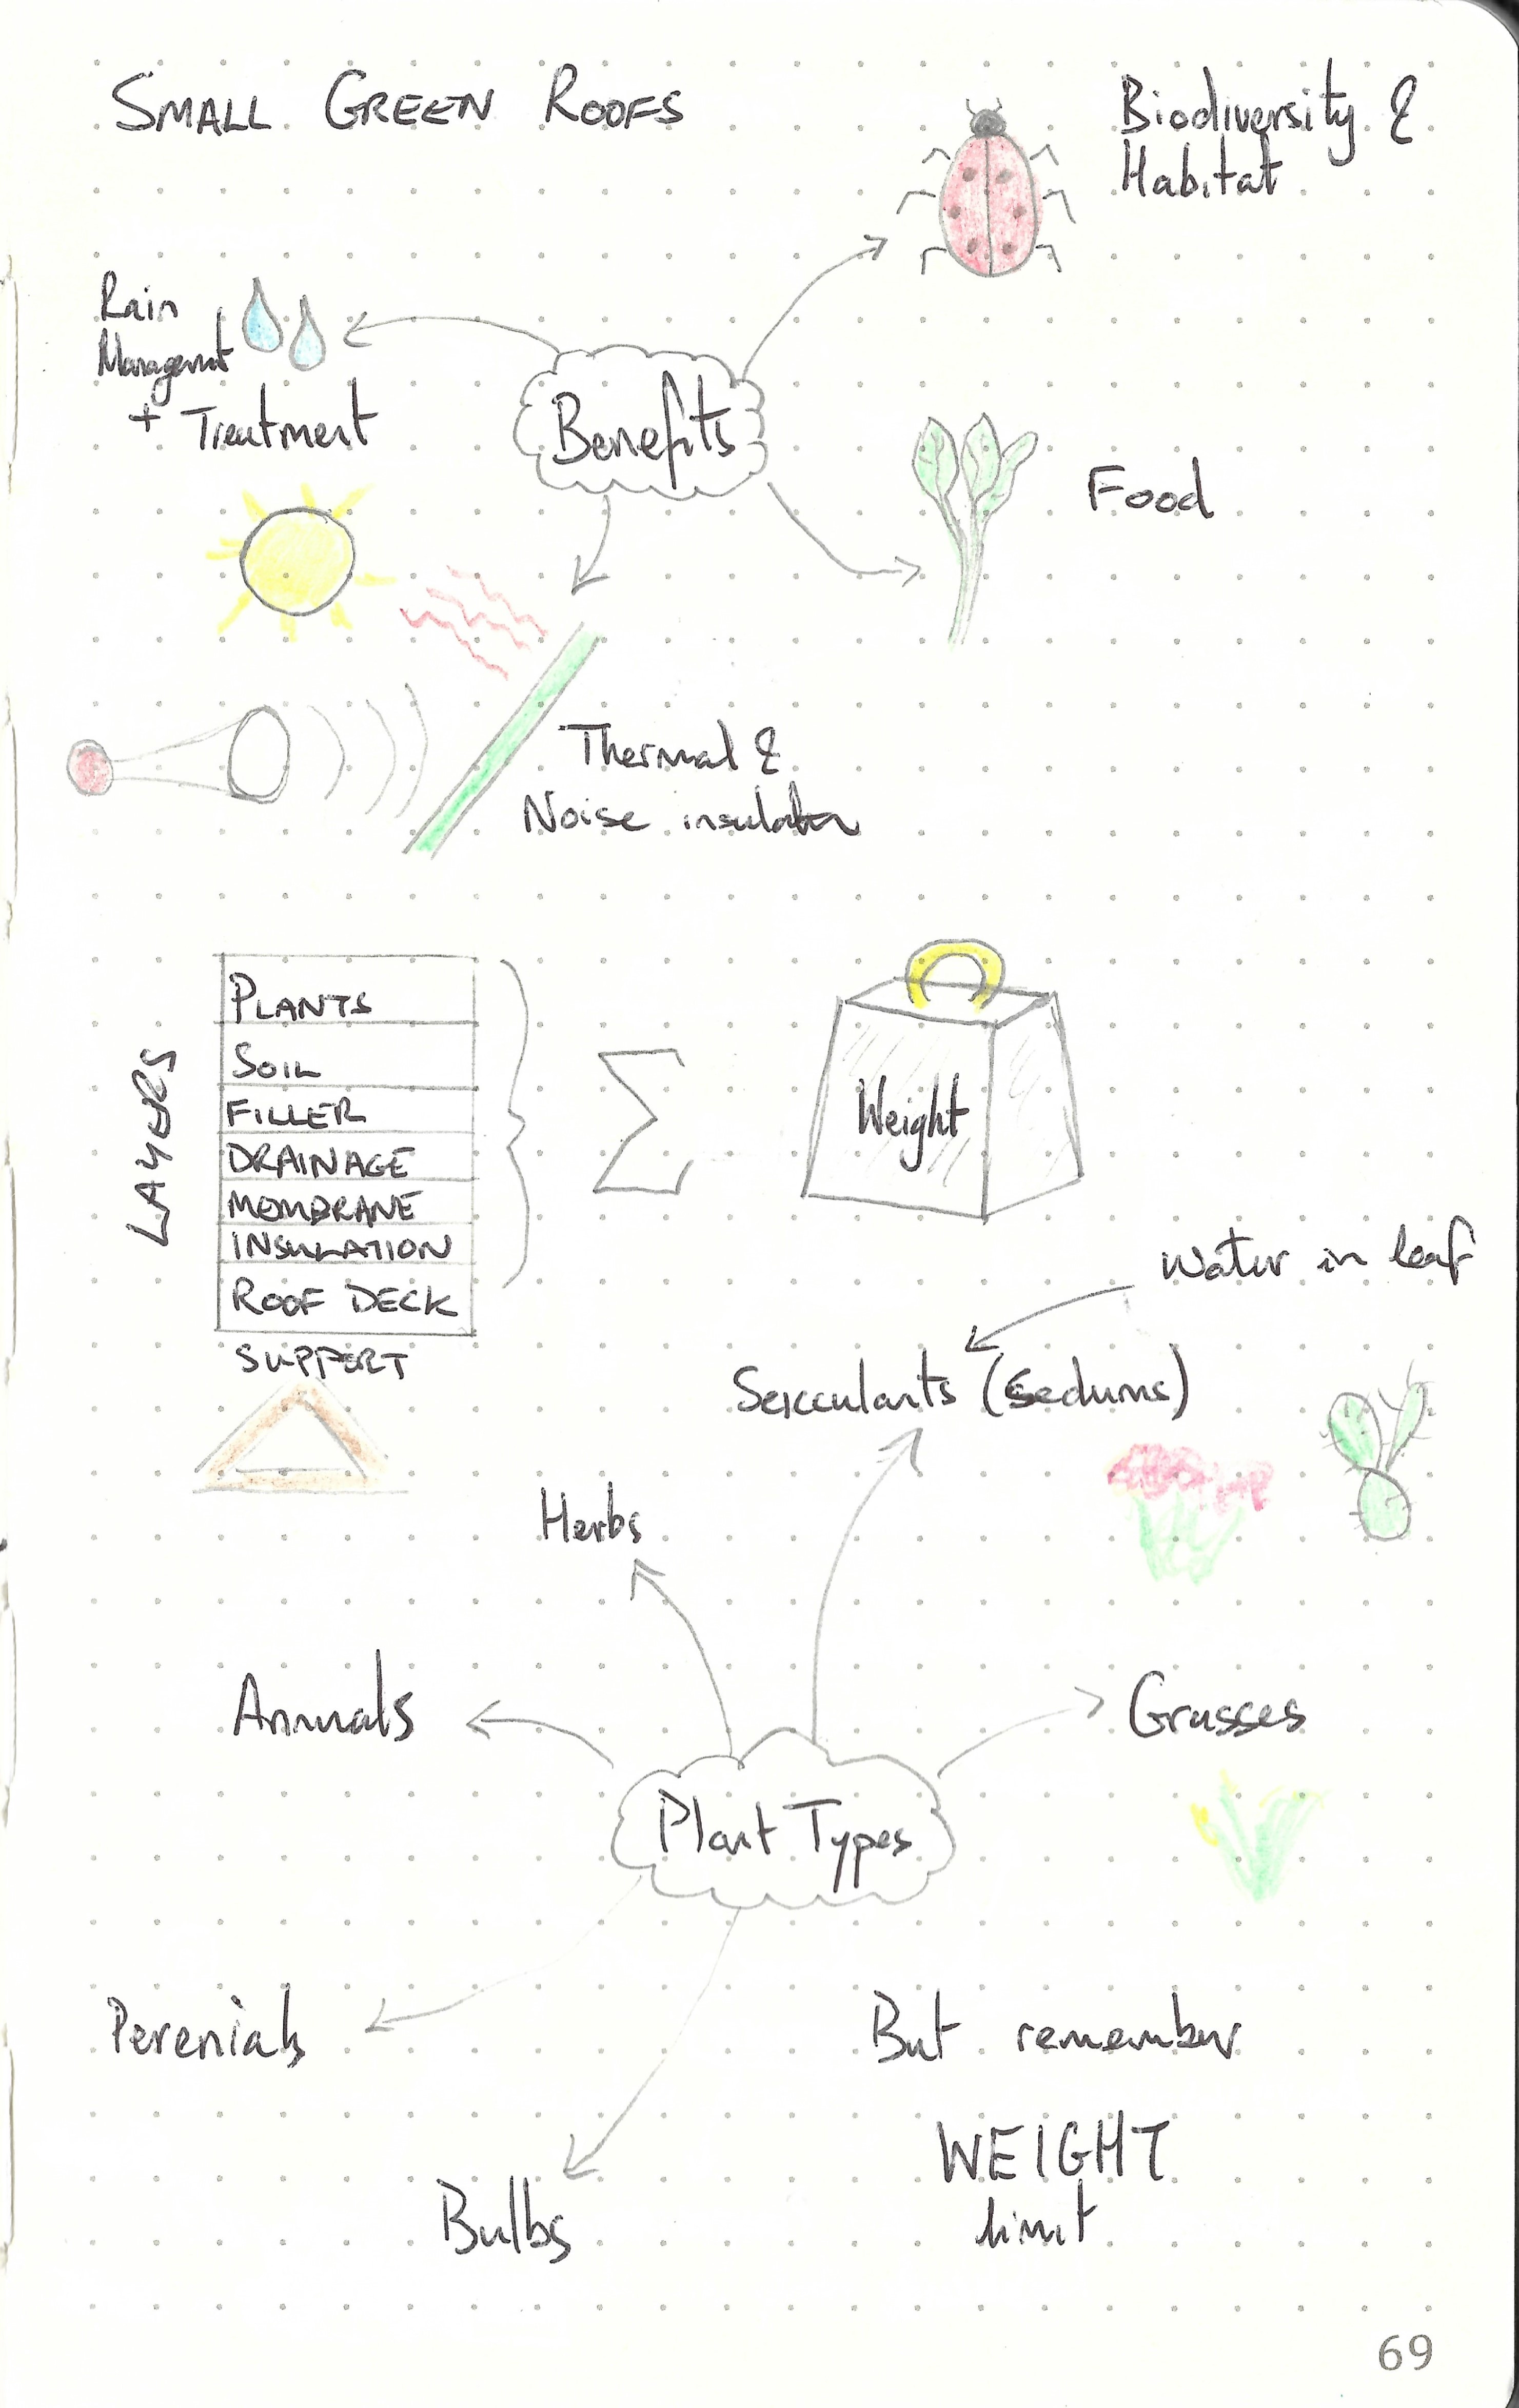 SMALL GREEN ROOFS
Biodiversity &
Habitat
Rain
Managemnt
+ Treatment
Benefits
Food
Thermal &
Noise insulation
LAYERS
PLANTS
SOIL
FILLER
DRAINAGE
MEMBRANE
INSULATION
ROOF DECK
SUPPORT
Weight
Water in leaf
Succulants (Sedums)
Herbs
Annuals
Grasses
Plant Types
Perenials
Bulbs
But remember
WEIGHT
limit
69